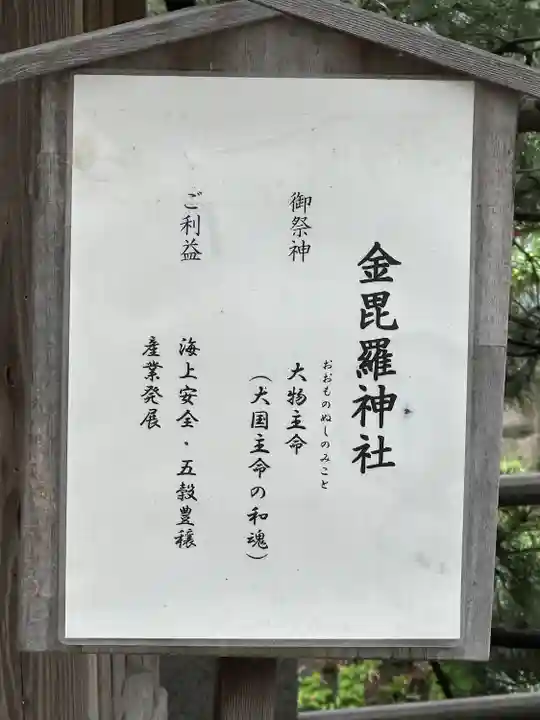 金毘羅神社
御祭神
おおものぬしのみこと
大物主命
(大国主命の和魂)
ご利益
海上安全・五穀豊穣
産業発展